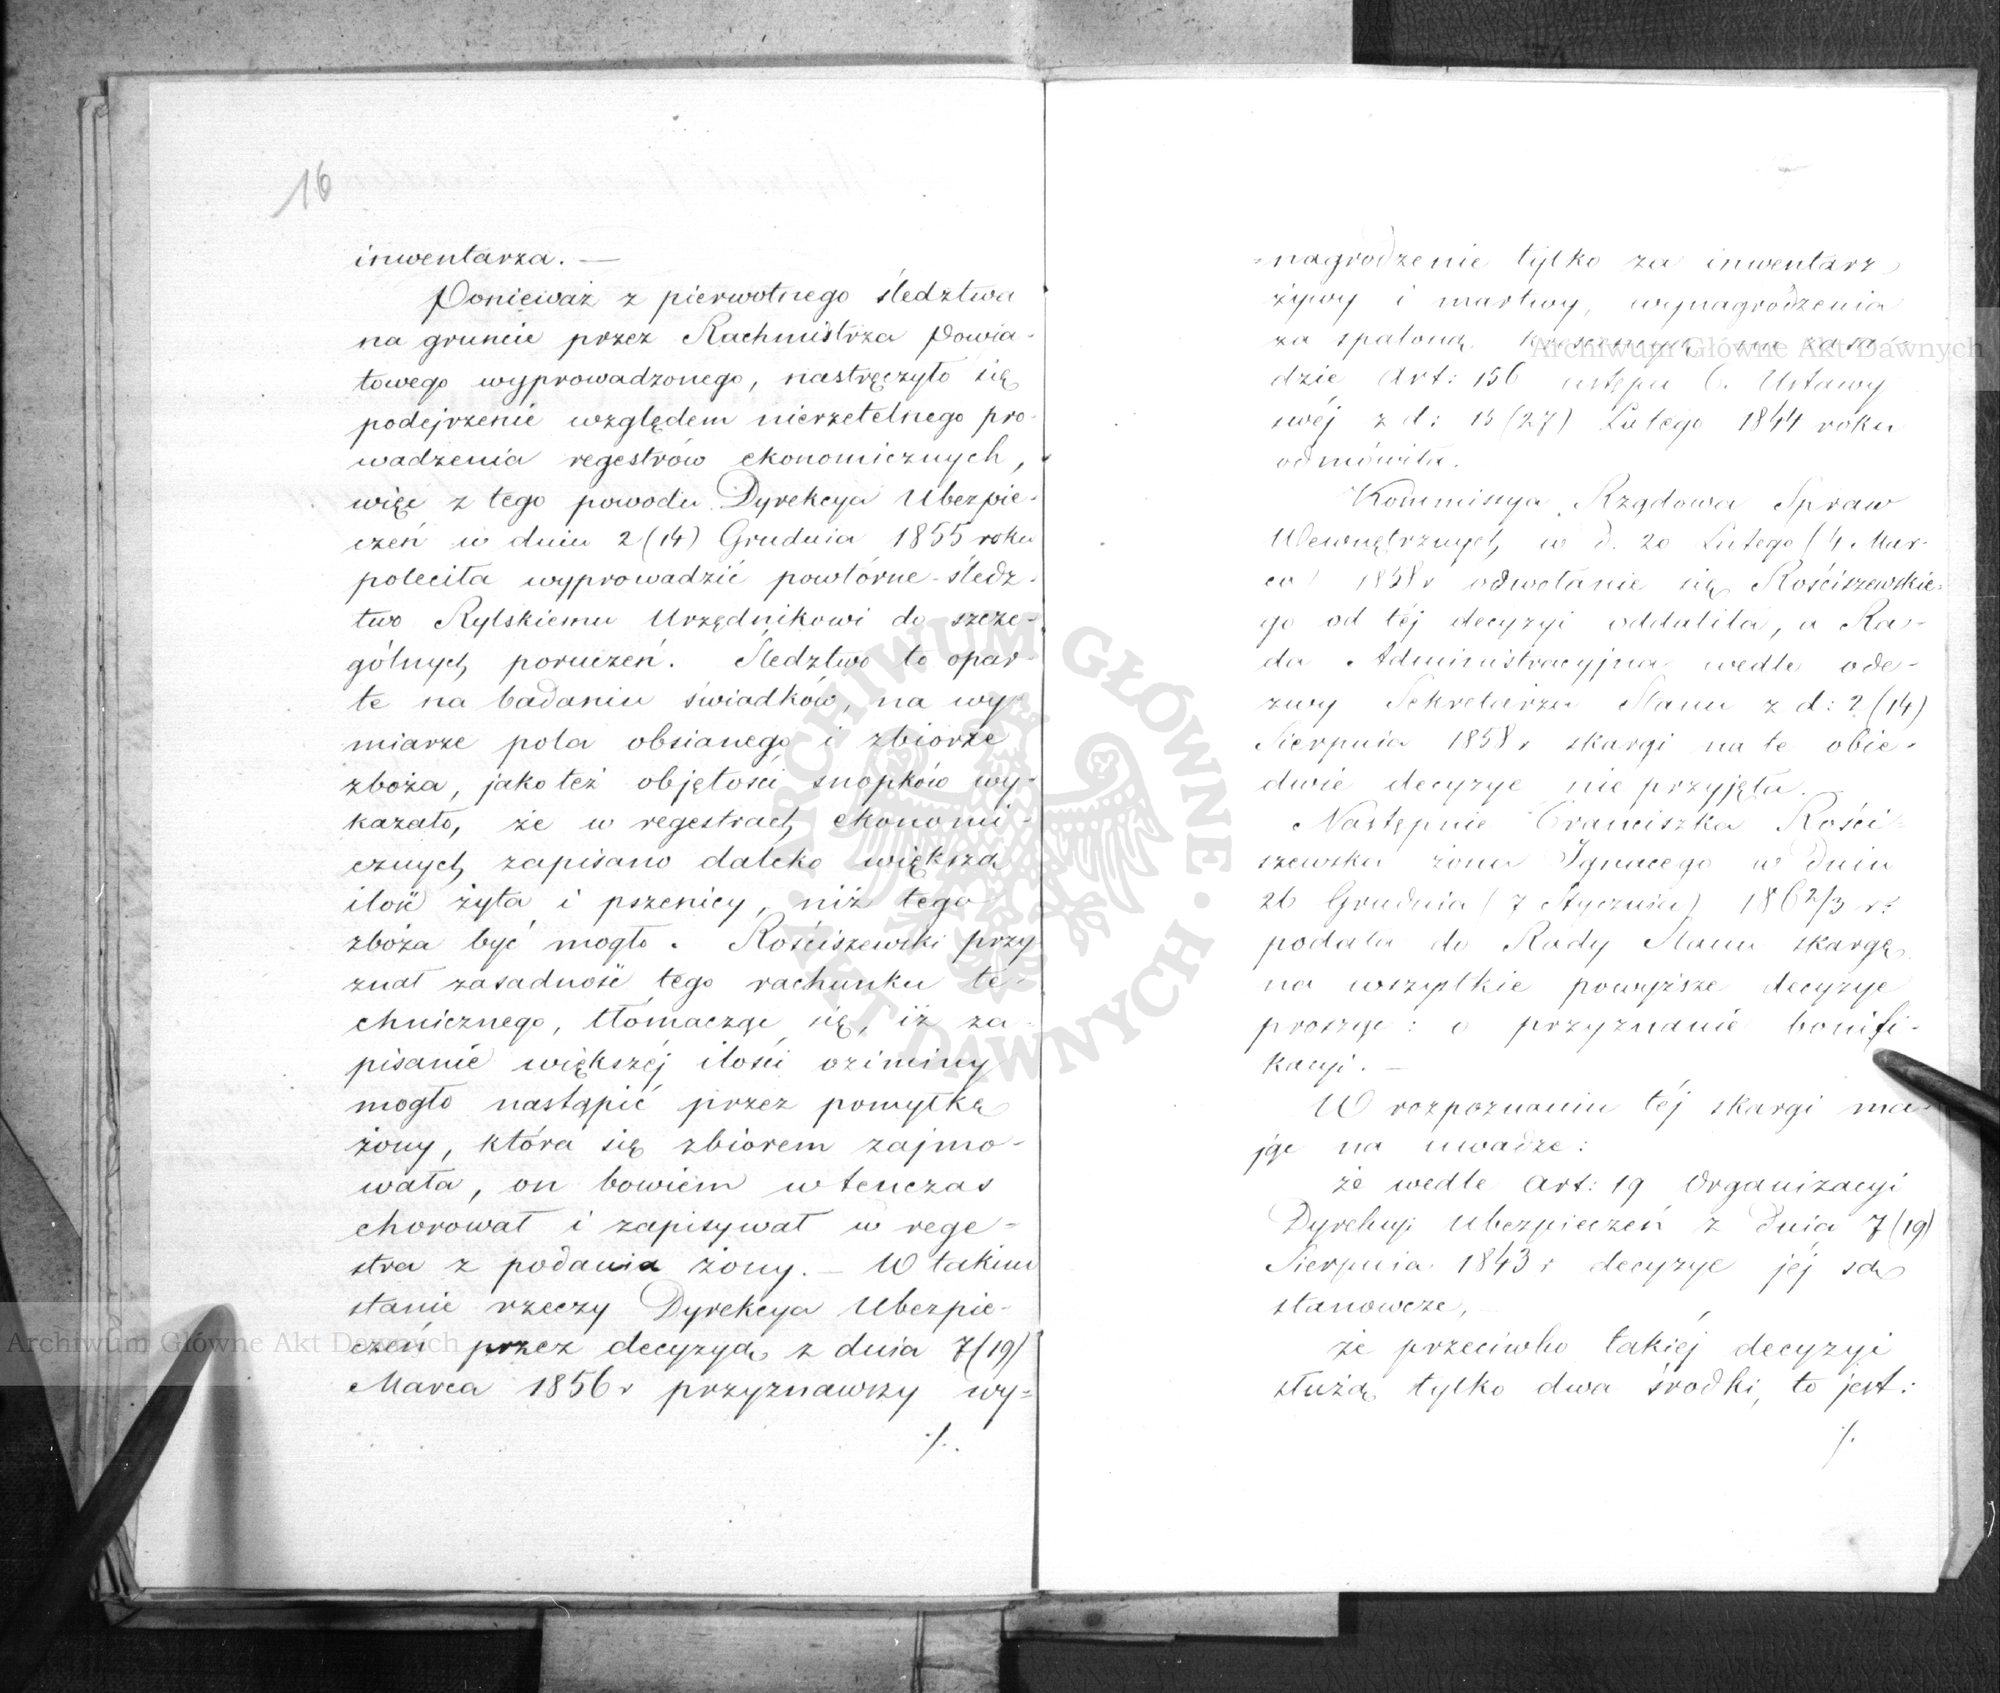 16
inwentarza. —
Ponieważ z pierwotnego śledztwa
na gruncie przez Rachmistrza Powia-
towego wyprowadzonego, nastręczyło się
podejrzenie względem nierzetelnego pro-
wadzenia regestrów ekonomicznych,
więc z tego powodu Dyrekcya Ubezpie-
czeń w dniu 2 (14) Grudnia 1855 roku
poleciła wyprowadzić powtórne śledz-
two Rylskiemu Urzędnikowi do szcze-
gólnych poruczeń. Śledztwo to opar-
te na badaniu świadków, na wy-
miarze pola obsianego i zbiorze
zboża, jako też objętości snopków wy-
kazało, że w regestrach ekonomi-
cznych zapisano daleko większa
ilość żyta i pszenicy, niż tego
zboża być mogło. Rościszewski przy
znał zasadność tego rachunku te-
chnicznego, tłómacząc się, iż za-
pisanie większéj ilości oziminy
mogło nastąpić przez pomyłkę
żony, która się zbiorem zajmo-
wała, on bowiem wtenczas
chorował i zapisywał w rege-
stra z podania żony. — W takim
stanie rzeczy Dyrekcya Ubezpie-
czeń przez decyzyą z dnia 7 (19)
Marca 1856 r przyznawszy wy=
./.
=nagrodzenie tylko za inwentarz
żywy i martwy, wynagrodzenia
za spaloną krescencyą na zasa-
dzie Art: 156 ustępu 6. Ustawy
swéj z d: 15 (27) Lutego 1844 roku
odmówiła.
Kommissya Rządowa Spraw
Wewnętrznych w d. 20 Lutego (4 Mar-
ca) 1858 r odwołanie się Rościszewskie-
go od téj decyzyi oddaliła, a Ra-
da Administracyjna wedle ode-
zwy Sekretarza Stanu z d: 2 (14)
Sierpnia 1858 r skargi na te obie-
dwie decyzye nie przyjęła.
Następnie Franciszka Rości-
szewska żona Ignacego w dniu
26 Grudnia (7 Stycznia) 1862/3 r:
podała do Rady Stanu skargę
na wszystkie powyższe decyzye
prosząc: o przyznanie bonifi-
kacyi. —
W rozpoznaniu téj skargi ma-
jąc na uwadze:
że wedle Art: 19 Organizacyi
Dyrekcyi Ubezpieczeń z dnia 7 (19)
Sierpnia 1843 r decyzye jéj są
stanowcze,
że przeciwko takiéj decyzyi
służą tylko dwa środki, to jest:
./.
Archiwum Główne Akt Dawnych
Archiwum Główne Akt Dawnych
ARCHIWUM GŁÓWNE · AKT DAWNYCH ·